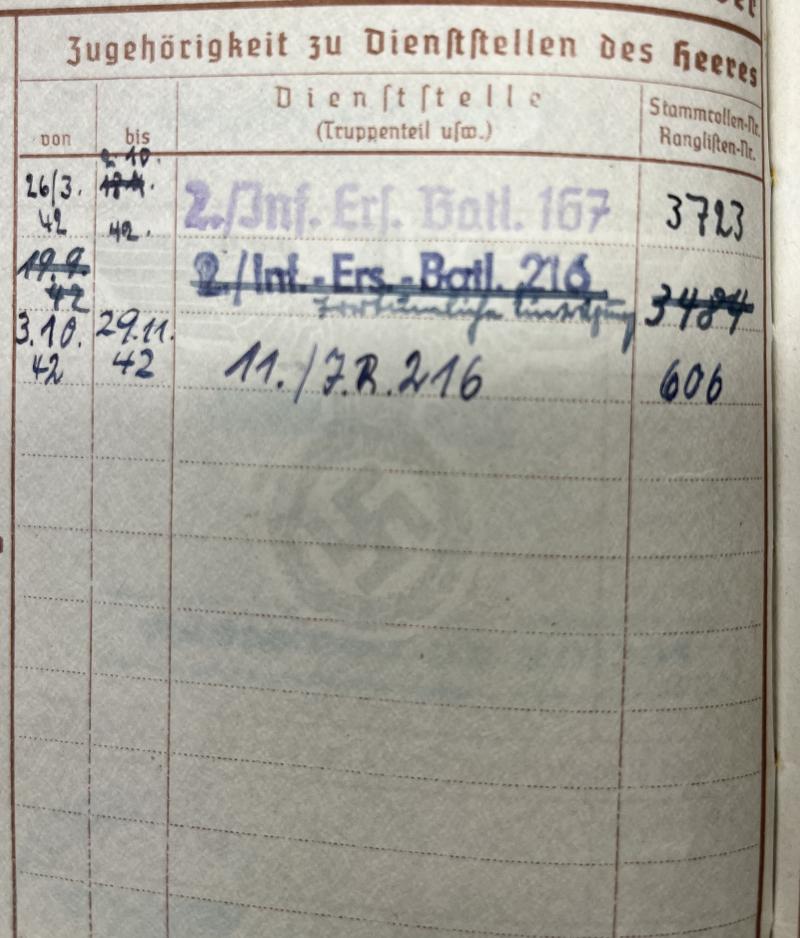 Zugehörigkeit zu Dienststellen des Heeres
von
bis
Dienststelle
(Truppenteil usw.)
Stammrollen-Nr.
Ranglisten-Nr.
26/3.
42
2.10.
42.
2./Inf. Ers. Batl. 167
3723
19.9.
42
2./Inf.-Ers.-Batl. 216
Irrtümliche Eintragung
3484
3.10.
42
29.11.
42
11./J.R.216
606